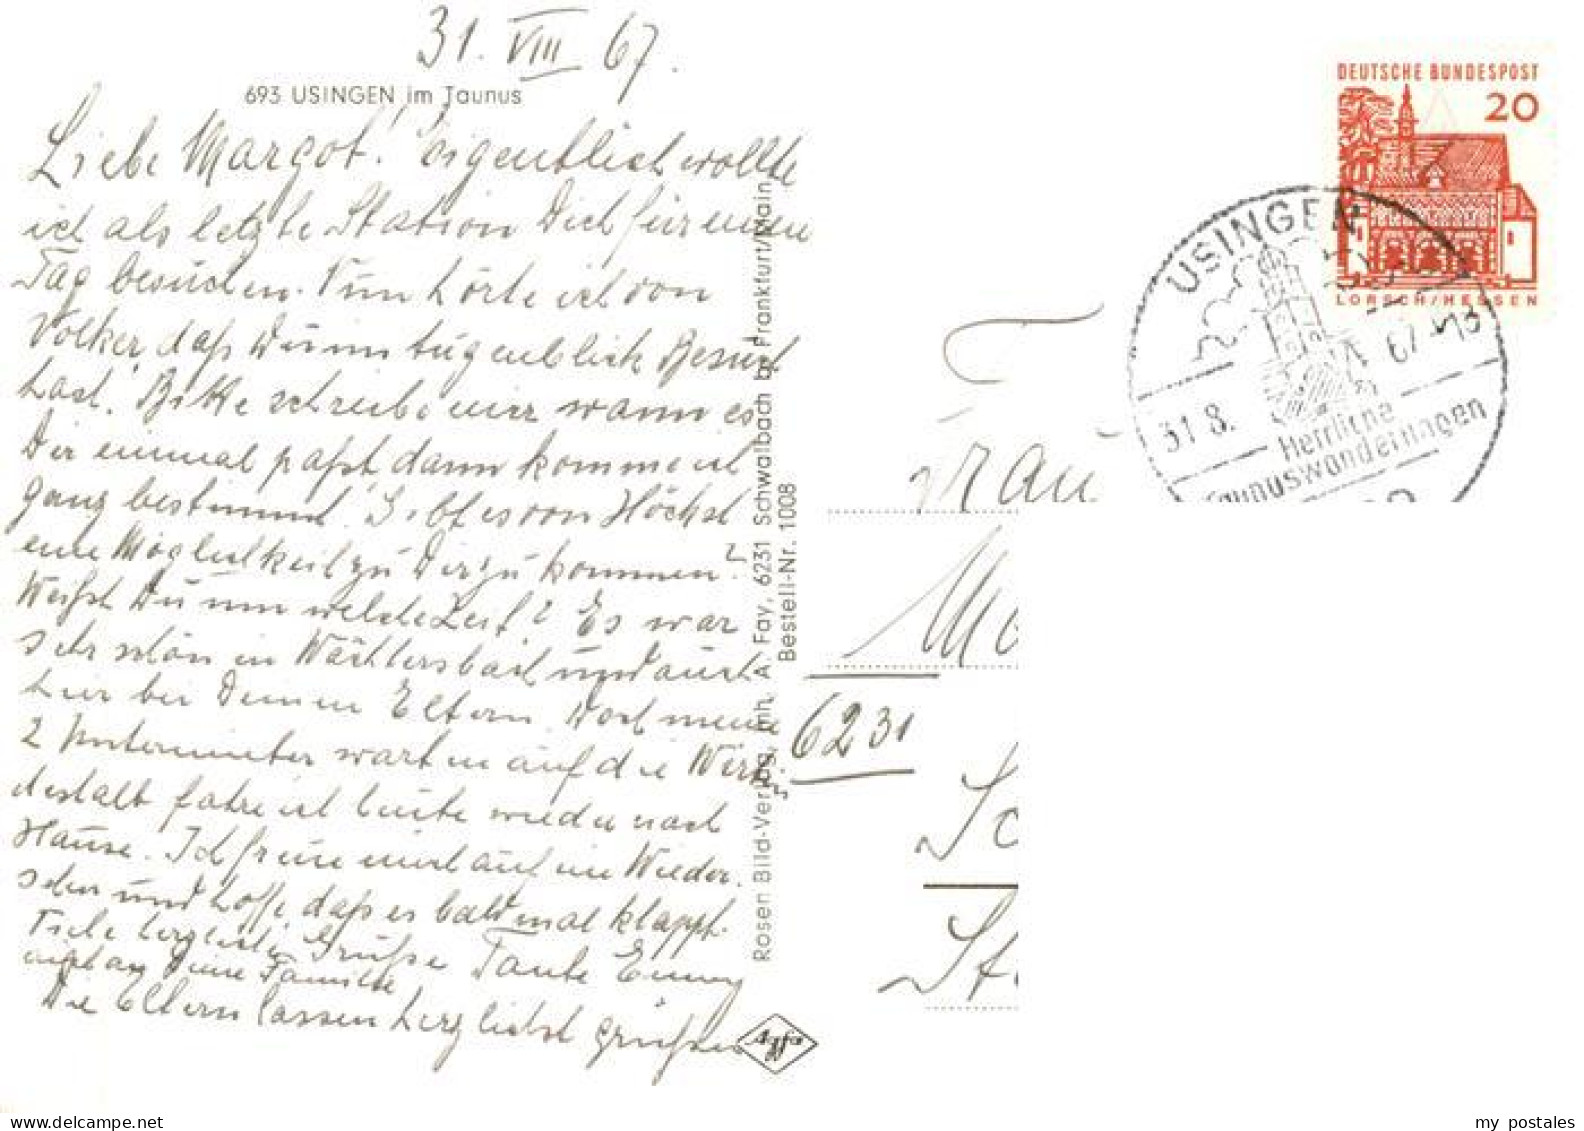 31. VIII 67.
693 USINGEN im Taunus
Liebe Margot! eigentlich wollte
ich als letzte Station Dich für einen
Tag besuchen. Nun hörte ich von
Volker, daß Du im Augenblick Besuch
hast. Bitte schreibe mir wann es
Dir einmal paßt, dann komme ich
ganz bestimmt. Gibt es von Höchst
eine Möglichkeit zu Dir zu kommen?
Weißt Du um welche Zeit? Es war
sehr schön in Wächtersbach und auch
hier bei Deinen Eltern. Doch meine
2 Untermieter warten auf die Wirtin
deshalb fahre ich heute wieder nach
Hause. Ich freue mich auf ein Wieder-
sehen und hoffe, daß es bald mal klappt.
Viele herzliche Grüße Tante Emmy
auch an Deine Familie
Die Eltern lassen herzlichst grüßen
Rosen Bild-Verlag, Inh. A. Fay, 6231 Schwalbach b. Frankfurt/Main
Bestell-Nr. 1008
Agfa
DEUTSCHE BUNDESPOST
20
LORSCH/HESSEN
USINGEN
31.8. 67-13
Herrliche
Taunuswanderungen
Frau
6231
my postales